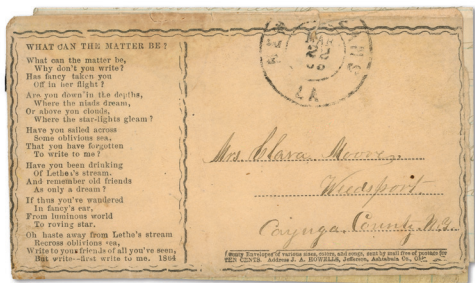 WHAT CAN THE MATTER BE?
What can the matter be,
Why don't you write?
Has fancy taken you
Off in her flight?
Are you down in the depths,
Where the niads dream,
Or above you clouds,
Where the star-lights gleam?
Have you sailed across
Some oblivious sea,
That you have forgotten
To write to me?
Have you been drinking
Of Lethe's stream.
And remember old friends
As only a dream?
If thus you've wandered
In fancy's ear,
From luminous world
To roving star.
Oh haste away from Lethe's stream
Recross oblivions sea,
Write to your friends of all you've seen,
But write—first write to me. 1864
NEW ORLEANS
MAR
22
LA
Mrs Clara Moore
Weedsport
Cayuga County N.Y.
Envelopes of various sizes, colors, and songs, sent by mail free of postage for
TEN CENTS. Address J. A. HOWELLS, Jefferson, Ashtabula Co., O